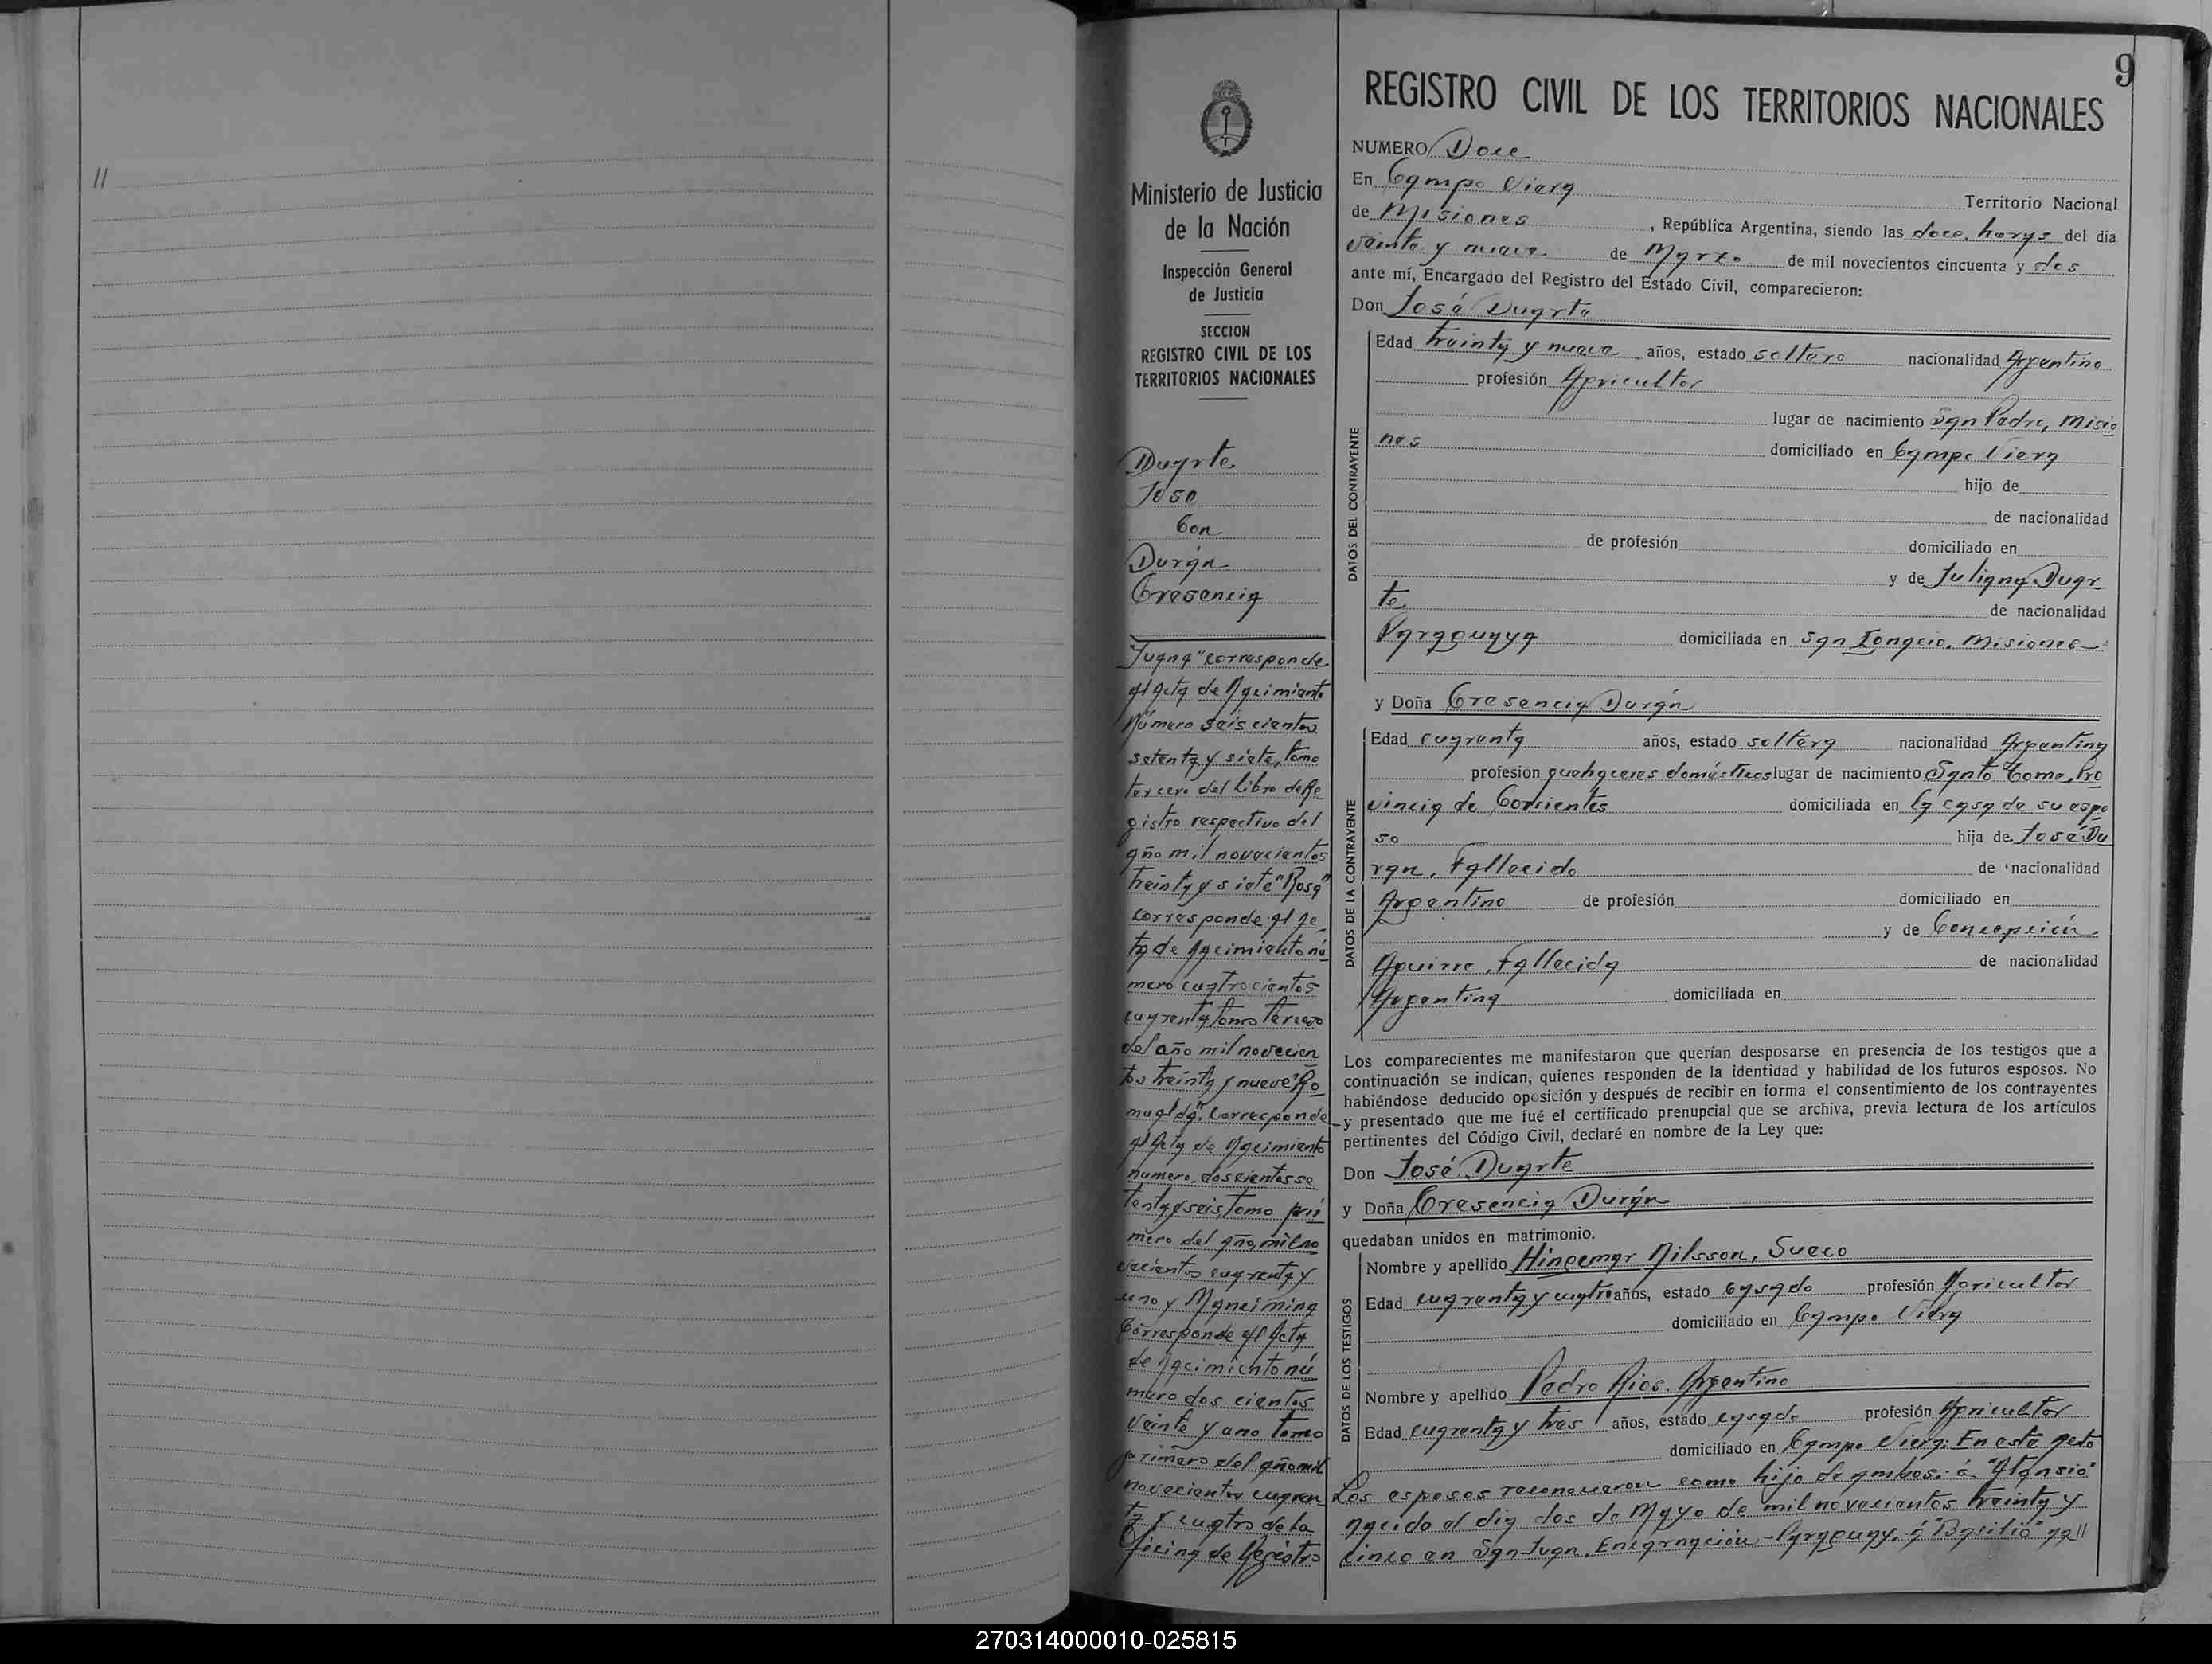 11
9
Ministerio de Justicia
de la Nación
Inspección General
de Justicia
SECCION
REGISTRO CIVIL DE LOS
TERRITORIOS NACIONALES
Duarte
José
Con
Durán
Cresencia
Juana" corresponde
al acta de Nacimiento
Número seiscientos
setenta y siete, tomo
tercero del libro de Re
gistro respectivo del
año mil novecientos
treinta y siete "Rosa"
corresponde al ac
ta de Nacimiento nú
mero cuatrocientos
cuarenta tomo tercero
del año mil novecien
tos treinta y nueve "Ro
mualda", Corresponde
al Acta de Nacimiento
numero, doscientos se
tenta y seis, Tomo pri
mero del año, mil no
vecientos cuarenta y
uno y Maneimina
Corresponde al Acta
de Nacimiento nú
mero dos cientos
veinte y uno tomo
primero del año mil
novecientos cuaren
ta y cuatro de la
Oficina de Registro
REGISTRO CIVIL DE LOS TERRITORIOS NACIONALES
NUMERO Doce
En Campo Viera Territorio Nacional
de Misiones, República Argentina, siendo las doce, horas del día
veinte y nueve de Marzo de mil novecientos cincuenta y dos
ante mí, Encargado del Registro del Estado Civil, comparecieron:
Don José Duarte
DATOS DEL CONTRAYENTE
Edad treinta y nueve años, estado soltero nacionalidad Argentino
profesión Agricultor
lugar de nacimiento San Pedro, Misio
nes domiciliado en Campo Viera
hijo de
de nacionalidad
de profesión domiciliado en
y de Juliana Duar
te de nacionalidad
Paraguaya domiciliada en San Ignacio, Misiones
y Doña Cresencia Durán
DATOS DE LA CONTRAYENTE
Edad cuarenta años, estado soltera nacionalidad Argentina
profesión quehaceres domésticos lugar de nacimiento Santo Tome, Pro
vincia de Corrientes domiciliada en la casa de su espo
so hija de José Du
ran, Fallecido de nacionalidad
Argentino de profesión domiciliado en
y de Concepción
Aguirre, Fallecida de nacionalidad
Argentina domiciliada en
Los comparecientes me manifestaron que querían desposarse en presencia de los testigos que a
continuación se indican, quienes responden de la identidad y habilidad de los futuros esposos. No
habiéndose deducido oposición y después de recibir en forma el consentimiento de los contrayentes
y presentado que me fué el certificado prenupcial que se archiva, previa lectura de los artículos
pertinentes del Código Civil, declaré en nombre de la Ley que:
Don José Duarte
y Doña Cresencia Durán
quedaban unidos en matrimonio.
DATOS DE LOS TESTIGOS
Nombre y apellido Hingemar Nilsson, Sueco
Edad cuarenta y cuatro años, estado Casado profesión Agricultor
domiciliado en Campo Viera
Nombre y apellido Pedro Rios, Argentino
Edad cuarenta y tres años, estado casado profesión Agricultor
domiciliado en Campo Viera: En este acto
Los esposos reconocieron como hijo de ambos: á "Atansio"
nacido el dia dos de Mayo de mil novecientos treinta y
cinco en San Juan, Encarnación - Paraguay, á "Basilio" na//
270314000010-025815